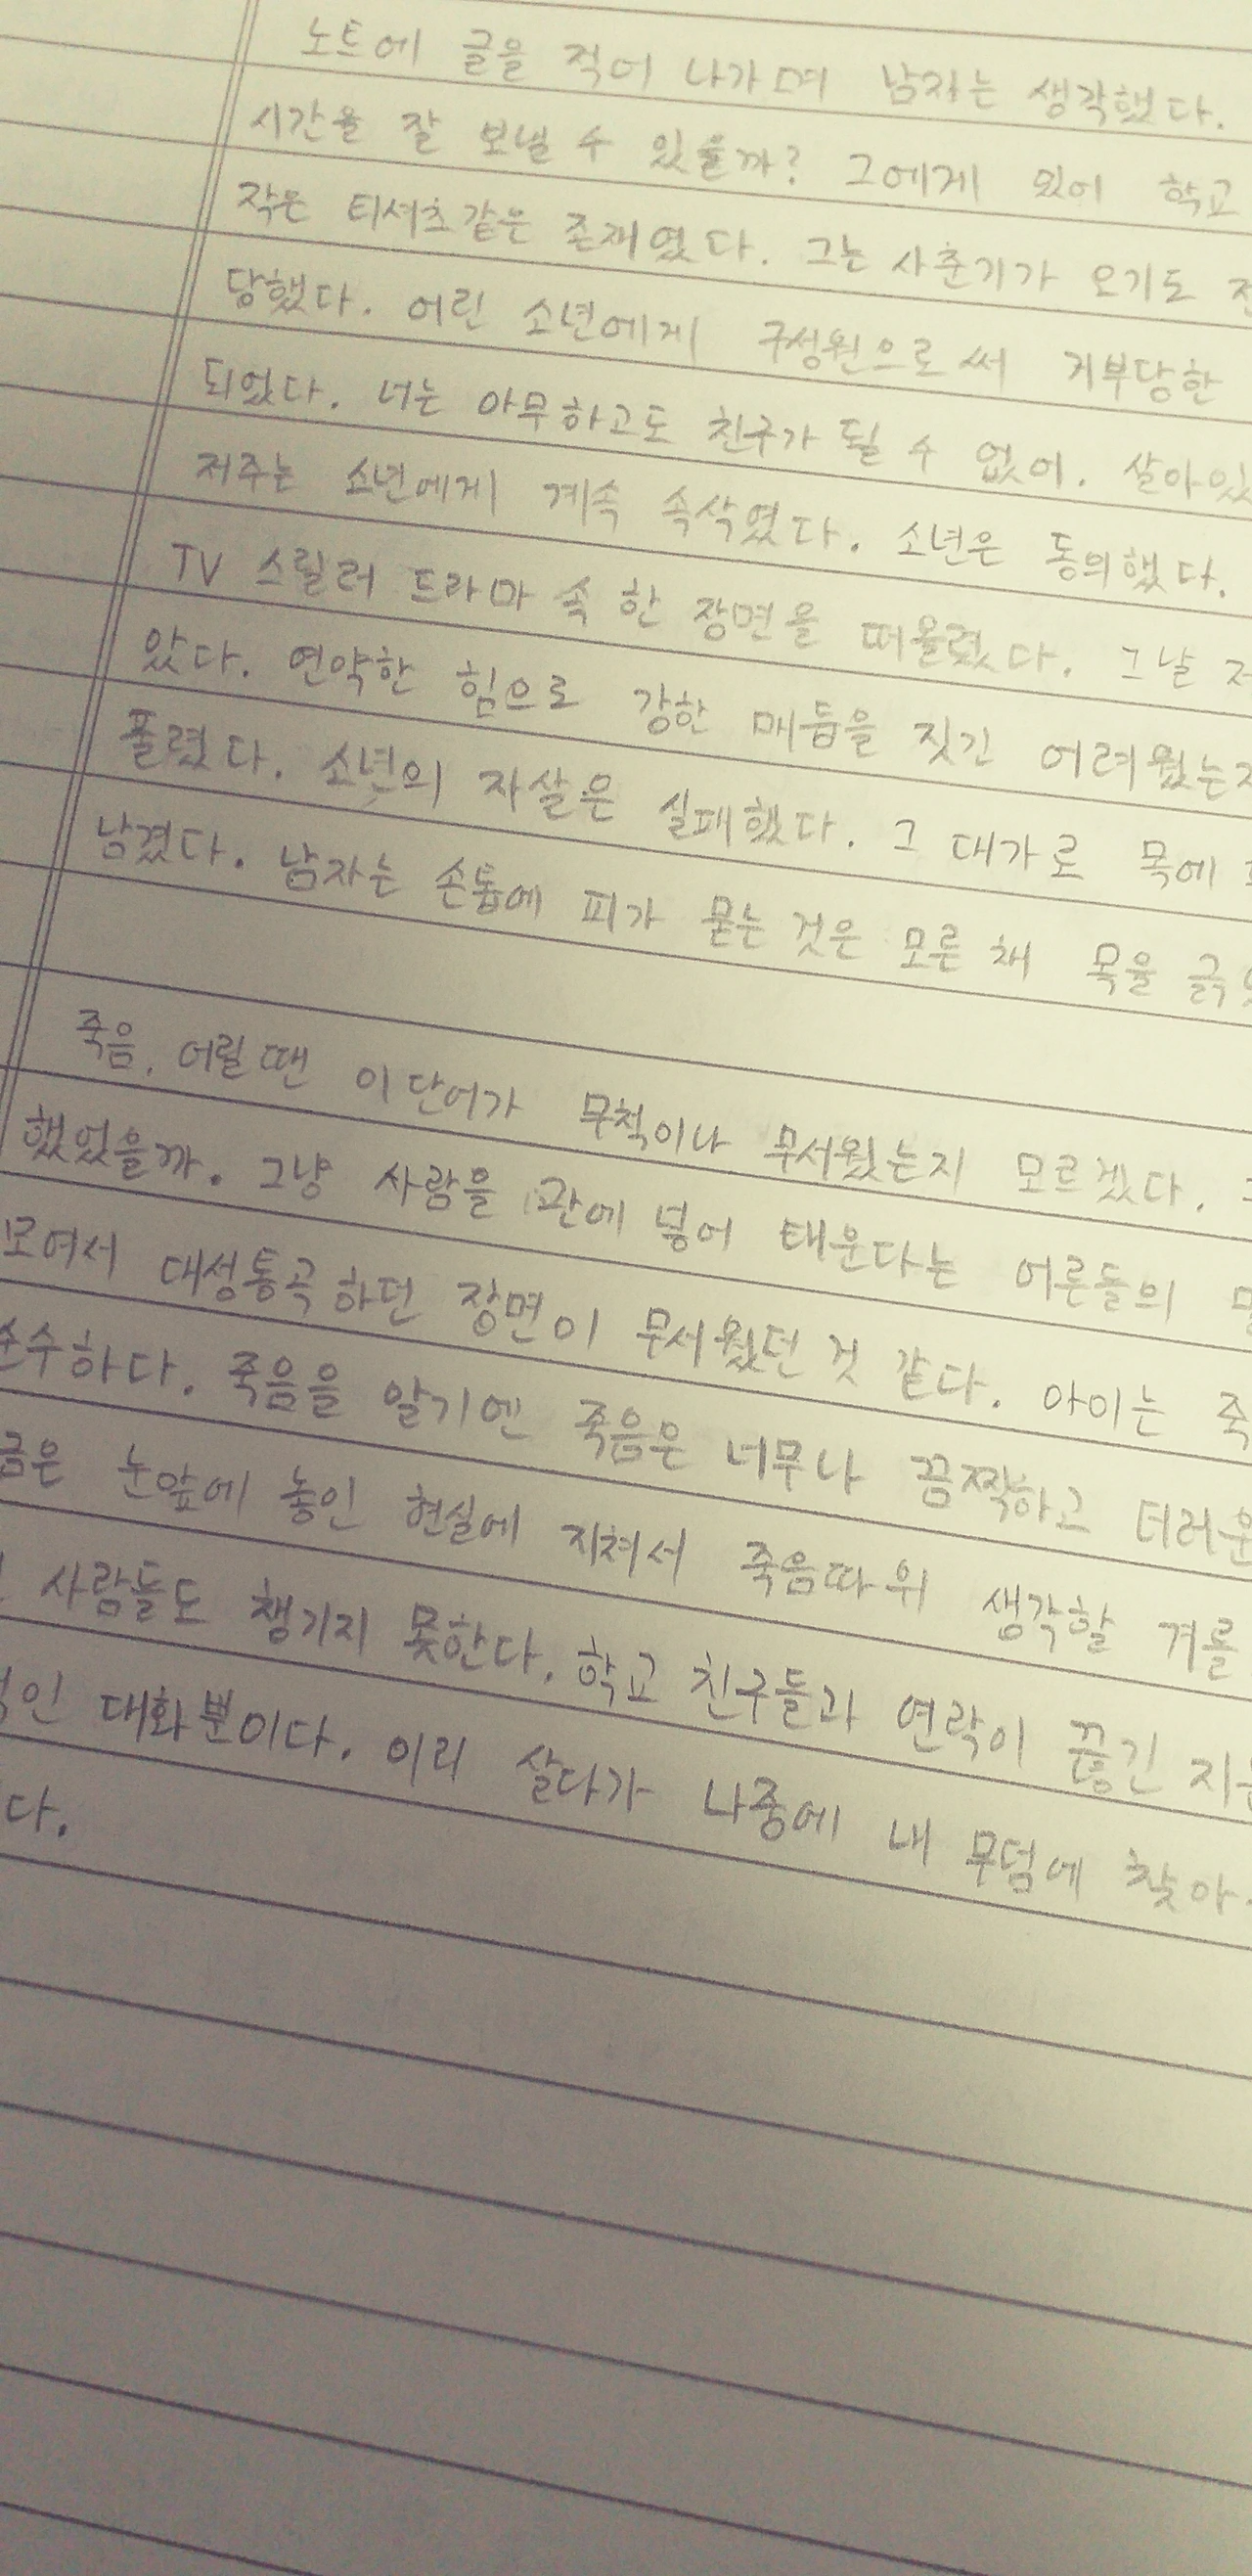 노트에 글을 적어 나가며 남자는 생각했다.
시간을 잘 보낼 수 있을까? 그에게 있어 학교
작은 티셔츠같은 존재였다. 그는 사춘기가 오기도
당했다. 어린 소년에게 구성원으로써 거부당한
되었다. 너는 아무하고도 친구가 될 수 없어. 살아있
저주는 소년에게 계속 속삭였다. 소년은 동의했다.
TV 스릴러 드라마 속 한 장면을 떠올렸다. 그날
았다. 연약한 힘으로 강한 매듭을 짓긴 어려웠는지
풀렸다. 소년의 자살은 실패했다. 그 대가로 목에
남겼다. 남자는 손톱에 피가 묻는 것은 모른 채 목을 긁
죽음. 어릴 땐 이 단어가 무척이나 무서웠는지 모르겠다.
했었을까. 그냥 사람을 관에 넣어 태운다는 어른들의
모여서 대성통곡하던 장면이 무서웠던 것 같다. 아이는 죽
순수하다. 죽음을 알기엔 죽음은 너무나 끔찍하고 더러운
금은 눈앞에 놓인 현실에 지쳐서 죽음따위 생각할 겨를
사람들도 챙기지 못한다. 학교 친구들과 연락이 끊긴 지는
적인 대화뿐이다. 이리 살다가 나중에 내 무덤에 찾아
다.